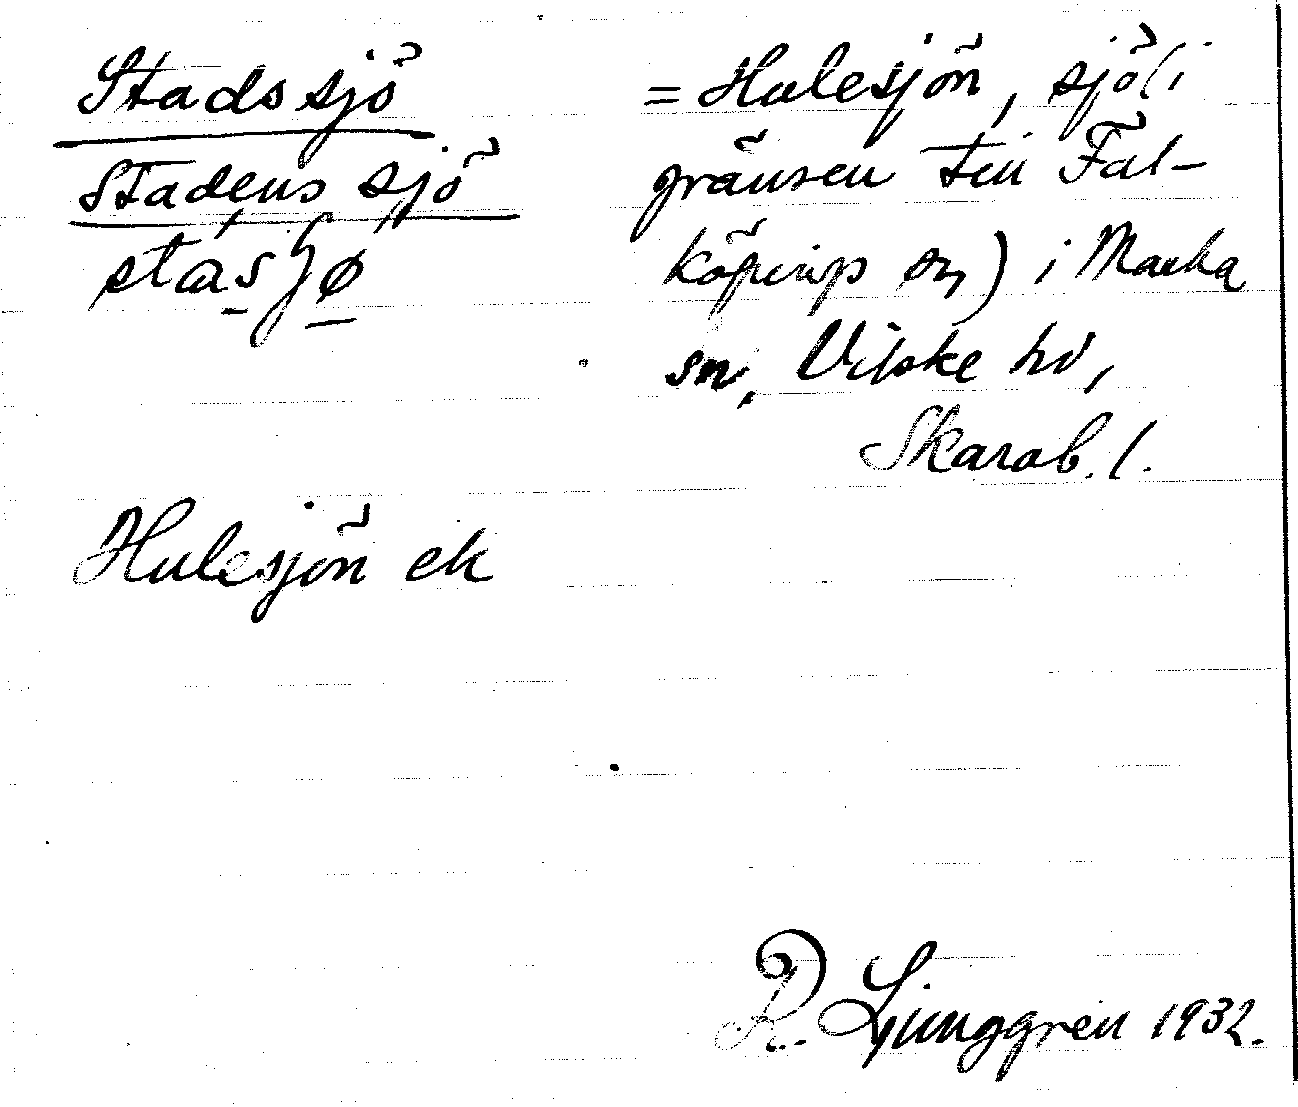 Stadssjö
Stadens sjö
stásʃø
= Hulesjön, sjö (i
gränsen till Fal-
köpings sn) i Marka
sn, Vilske hd,
Skarab. l.
Hulesjön ek
R. Ljunggren 1932.